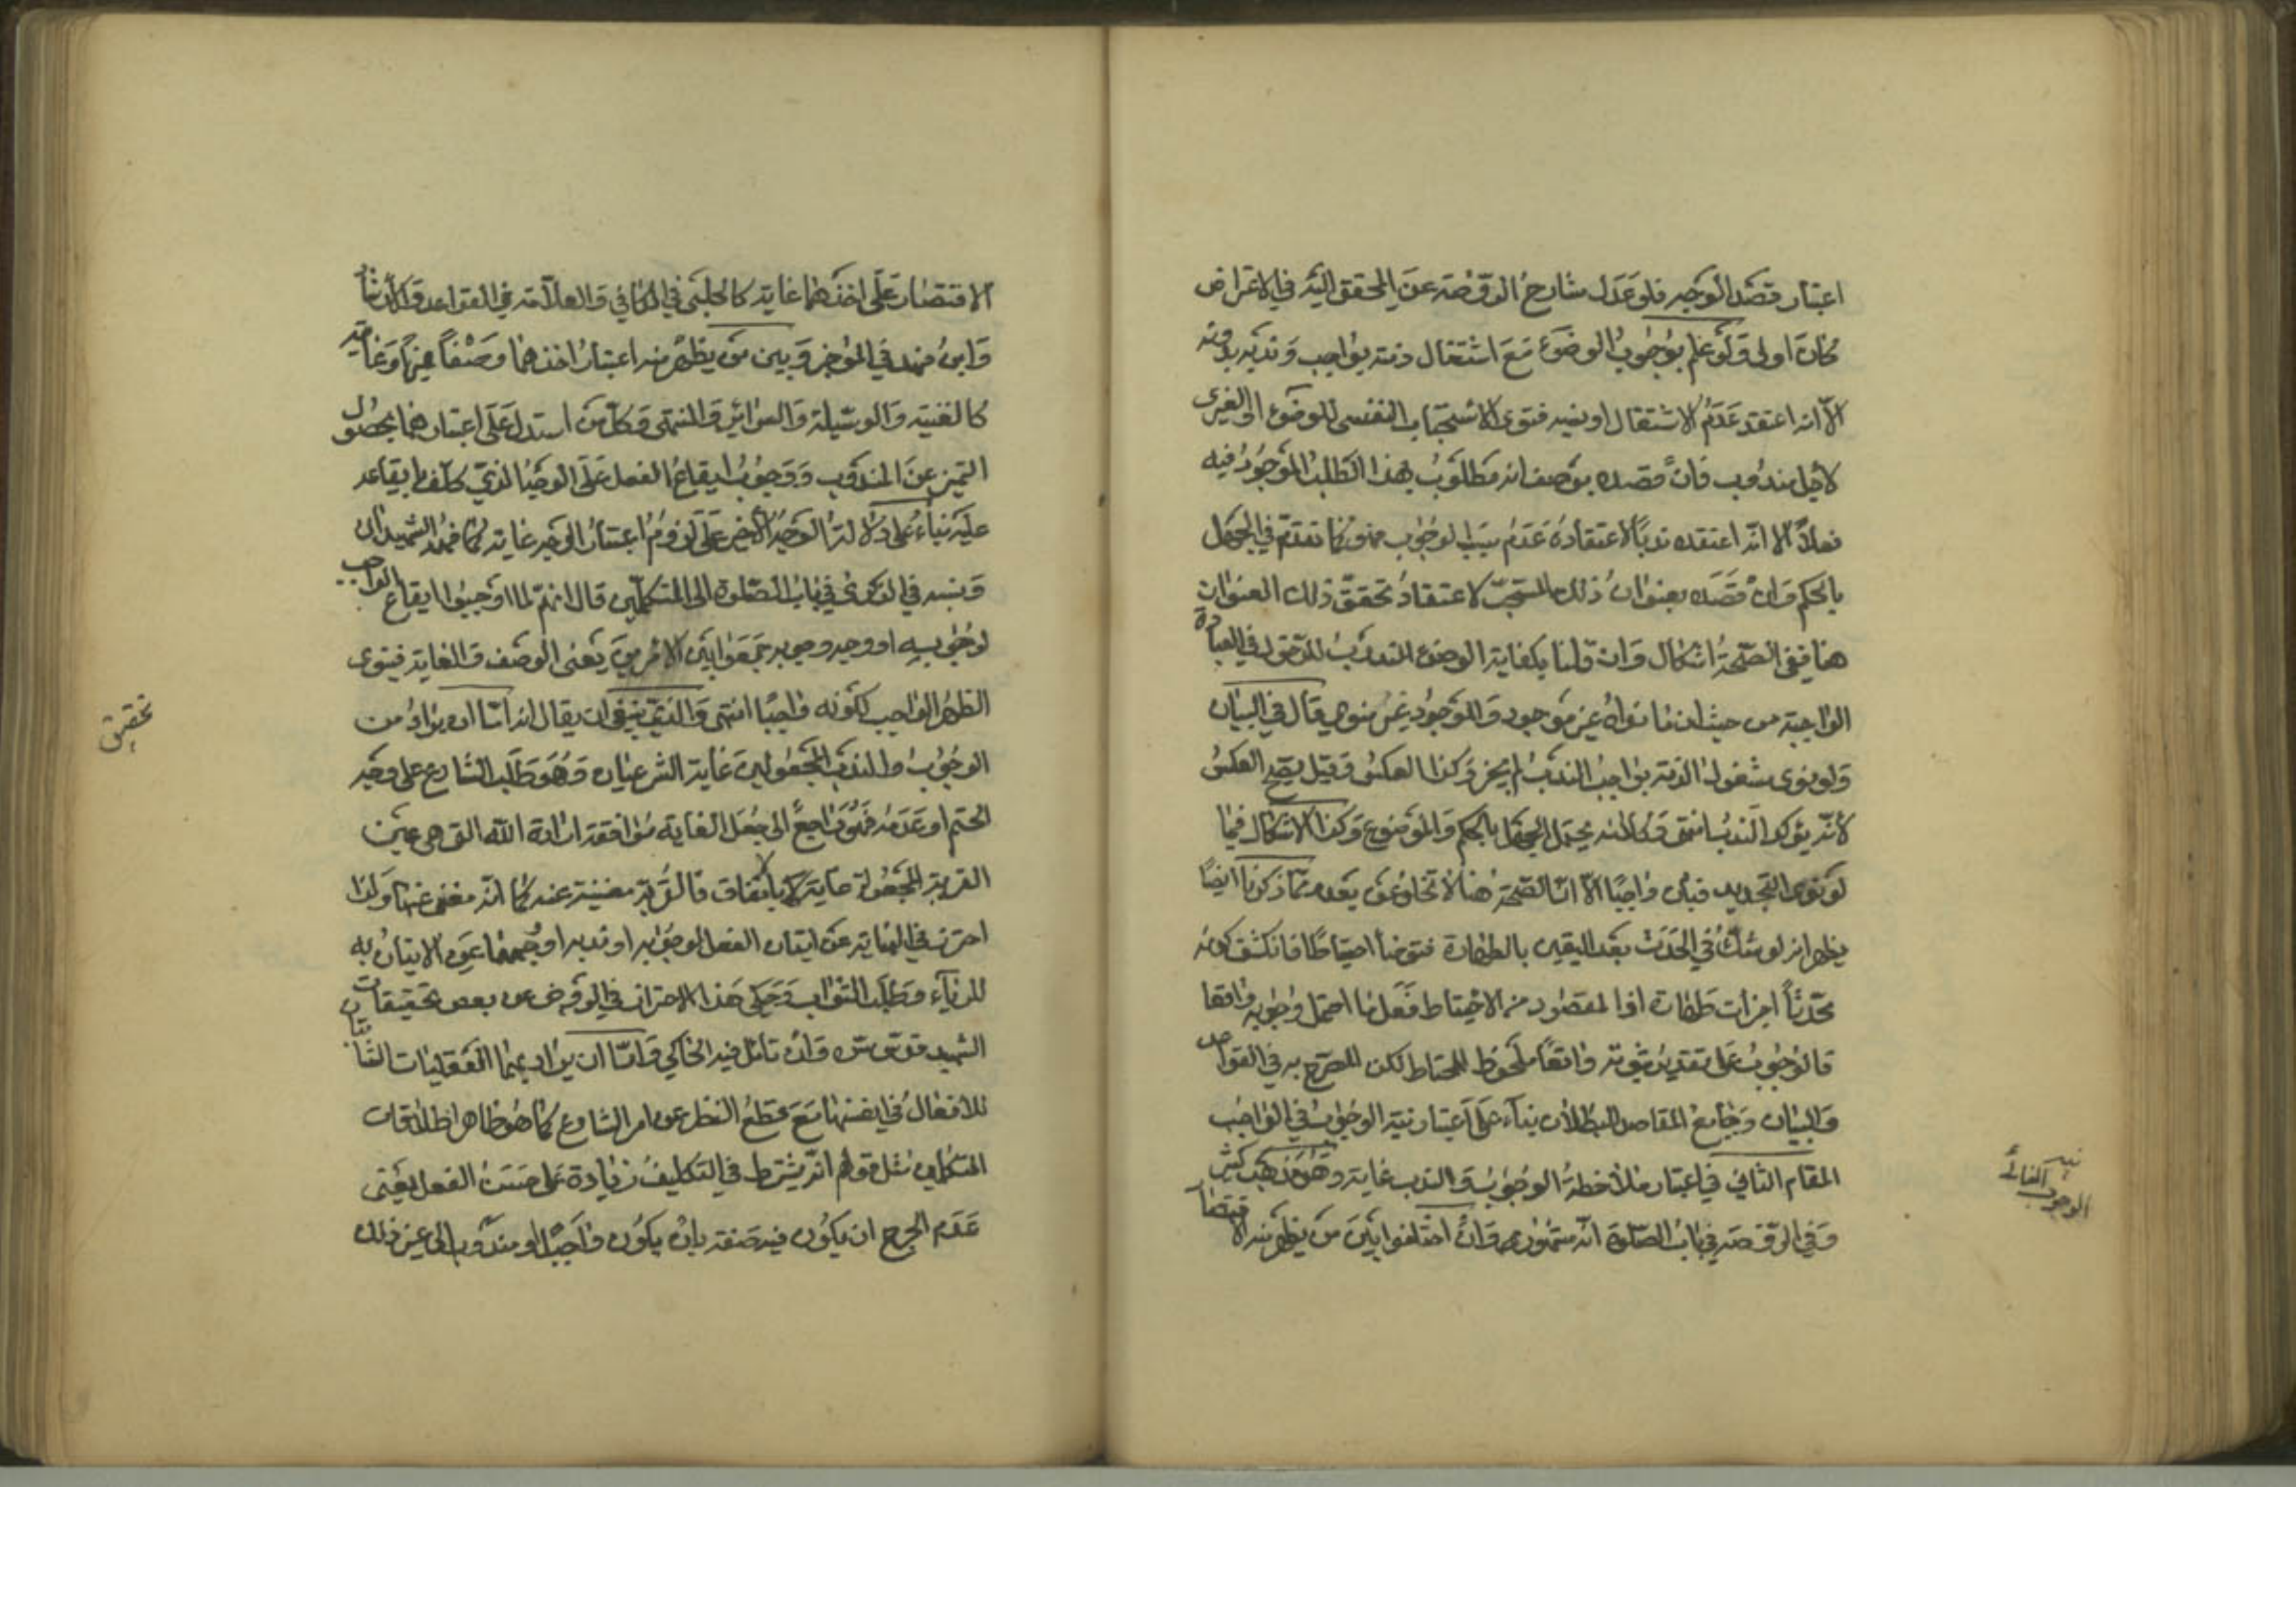 اعتبار قصد الوجه فلو عدل شارح الروضة عن المحقق اليه في الاعتراض
كان اولى ولو علم بوجوب الوضوء مع اشتغال ذمته بواجب وندبه بدونه
الا انه اعتقد عدم الاشتغال او نسيه فنوى الاستحباب النفسي للوضوء او الغيري
لاجل مندوب فان قصده بوصف انه مطلوب بهذا الطلب الموجود فيه
فعلا الا انه اعتقده ندبا لاعتقاده عدم سبب الوجوب فهو كما تقدم في الجهل
بالحكم وان قصده بعنوان ذلك المستحب لاعتقاد تحقق ذلك العنوان
هنا ففي الصحة اشكال وان قلنا بكفاية الوضوء المندوب للدخول في العبادة
الواجبة من حيث ان ما نواه غير موجود والموجود غير منوي قال في البيان
ولو نوى مشغول الذمة بواجب الندب لم يجز وكذا العكس وقيل يصح العكس
لانه يؤكد الندب انتهى وكلامه يحتمل الجهل بالحكم والموضوع وكذا الاشكال فيما
لو نوى التجديد فبان واجبا الا ان الصحة هنا لا تخلو عن بعد مما ذكرنا ايضا
يظهر انه لو شك في الحدث بعد اليقين بالطهارة فتوضأ احتياطا فانكشف كونه
محدثا اجزأت طهارته اذ المقصود من الاحتياط فعل ما احتمل وجوبه واقعا
فالوجوب على تقدير ثبوته واقعا ملحوظ للمحتاط لكن المصرح به في القواعد
والبيان وجامع المقاصد البطلان بناء على اعتبار نية الوجوب في الواجب
المقام الثاني في اعتبار ملاحظة الوجوب والندب غاية وهو مذهب كثير
وفي الروضة في باب الصلوة انه مشهور وان اختلفوا بين من يظهر منه الاقتصار
نية الوجوب الغائي
الاقتصار على اخذهما غاية كالحلبي في الكافي والعلامة في القواعد والارشاد
وابن فهد في الموجز وبين من يظهر منه اعتبار اخذهما وصفا مميزا وغاية
كالغنية والوسيلة والسرائر والمنتهى وكل من استدل على اعتبارهما بحصول
التميز عن المندوب ووجوب ايقاع الفعل على الوجه الذي كلف بايقاعه
عليه بناء على دلالة الوجه الاخير على لزوم اعتبار الوجه غاية كما فهمه الشهيدان
ونسبه في الذكرى في باب الصلوة الى المتكلمين قال انهم لما اوجبوا ايقاع الواجب
لوجوبه او وجه وجوبه جمعوا بين الامرين يعني الوصف والغاية فينوى
الظهر الواجب لكونه واجبا انتهى والذي ينبغي ان يقال انه اما ان يراد من
الوجوب والندب المجعولين غاية الشرعيان وهو طلب الشارع على وجه
الحتم او عدمه فهو راجع الى جعل الغاية موافقة ارادة الله التي هي عين
القربة المجعولة غاية بالاتفاق فالقربة مغنية عنه كما انه مغنى عنها ولذا
احترز في النهاية عن اتيان الفعل لوجوبه او ندبه او وجههما عن الاتيان به
للرياء وطلب الثواب وحكى هذا الاحتراز في الروض عن بعض تحقيقات
الشهيد قدس سره وان تأمل فيه الحاكي واما ان يراد بهما العقليان الثابتان
للافعال في انفسها مع قطع النظر عن امر الشارع كما هو ظاهر اطلاقات
المتكلمين مثل قولهم انه يشترط في التكليف زيادة على حسن الفعل بمعنى
عدم الحرج ان يكون فيه صفة بان يكون واجبا او مندوبا الى غير ذلك
تحقيق